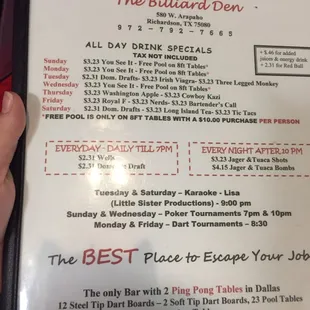 The Billiard Den
580 W. Arapaho
Richardson, TX 75080
972-792-7665
ALL DAY DRINK SPECIALS
TAX NOT INCLUDED
+ $.46 for added
juices & energy drink
+ 2.31 for Red Bull
Sunday $3.23 You See It - Free Pool on 8ft Tables*
Monday $3.23 You See It - Free Pool on 8ft Tables*
Tuesday $2.31 Dom. Drafts- $3.23 Irish Viagra- $3.23 Three Legged Monkey
Wednesday $3.23 You See It - Free Pool on 8ft Tables*
Thursday $3.23 Washington Apple - $3.23 Cowboy Kazi
Friday $3.23 Royal F - $3.23 Nerds- $3.23 Bartender's Call
Saturday $2.31 Dom. Drafts - $3.23 Long Island Tea- $3.23 Tic Tacs
*FREE POOL IS ONLY ON 8FT TABLES WITH A $10.00 PURCHASE PER PERSON
EVERYDAY - DAILY TILL 7PM
$2.31 Wells
$2.31 Domestic Draft
EVERY NIGHT AFTER 10 PM
$3.23 Jager & Tuaca Shots
$4.15 Jager & Tuaca Bombs
Tuesday & Saturday – Karaoke - Lisa
(Little Sister Productions) - 9:00 pm
Sunday & Wednesday – Poker Tournaments 7pm & 10pm
Monday & Friday – Dart Tournaments – 8:30
The BEST Place to Escape Your Job
The only Bar with 2 Ping Pong Tables in Dallas
12 Steel Tip Dart Boards – 2 Soft Tip Dart Boards, 23 Pool Tables